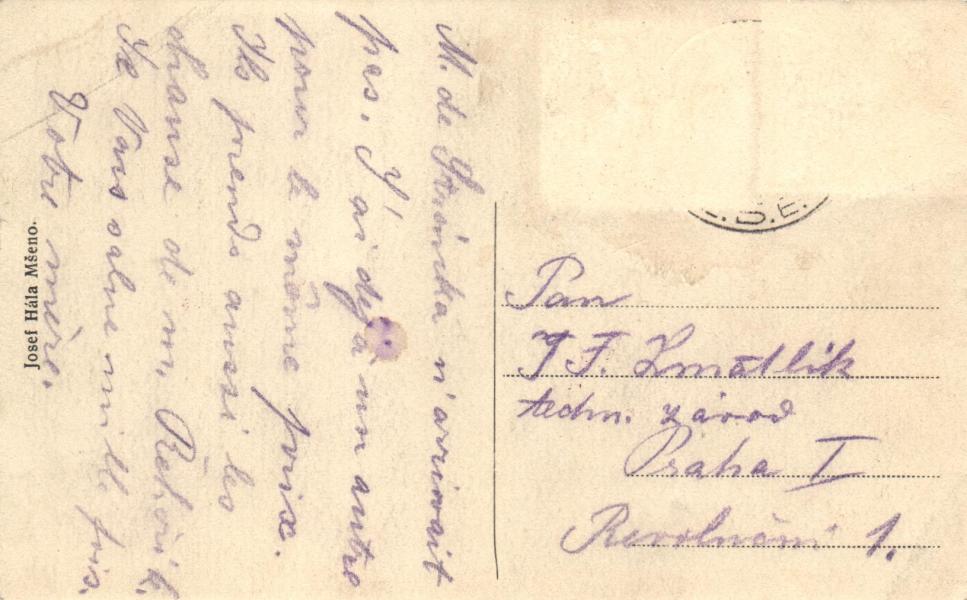 M. de n'arrivait
pas. J'ai dejà un autre
pour le même prix.
Ils prends aussi les
de m. Řehořík.
Je Vous salue mille fois.
Votre mère.
Josef Hála Mšeno.
.D.E.
Pan
J F. Zmátlík
techn. závod
Praha I
Revoluční 1.